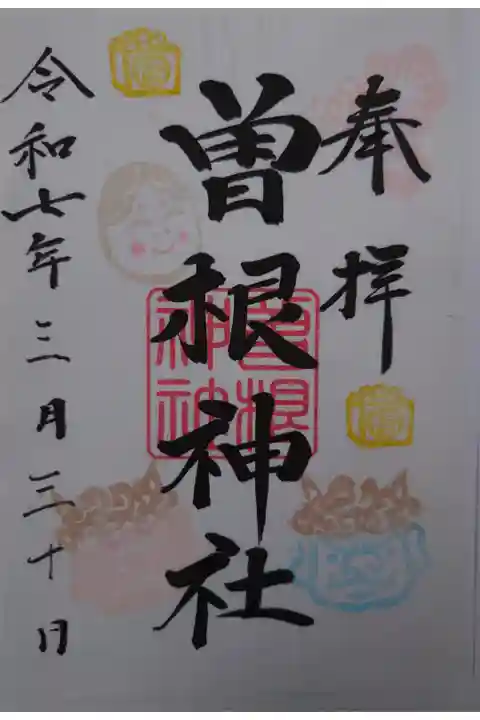 奉拝
曽根神社
曽根神社
令和七年三月三十日